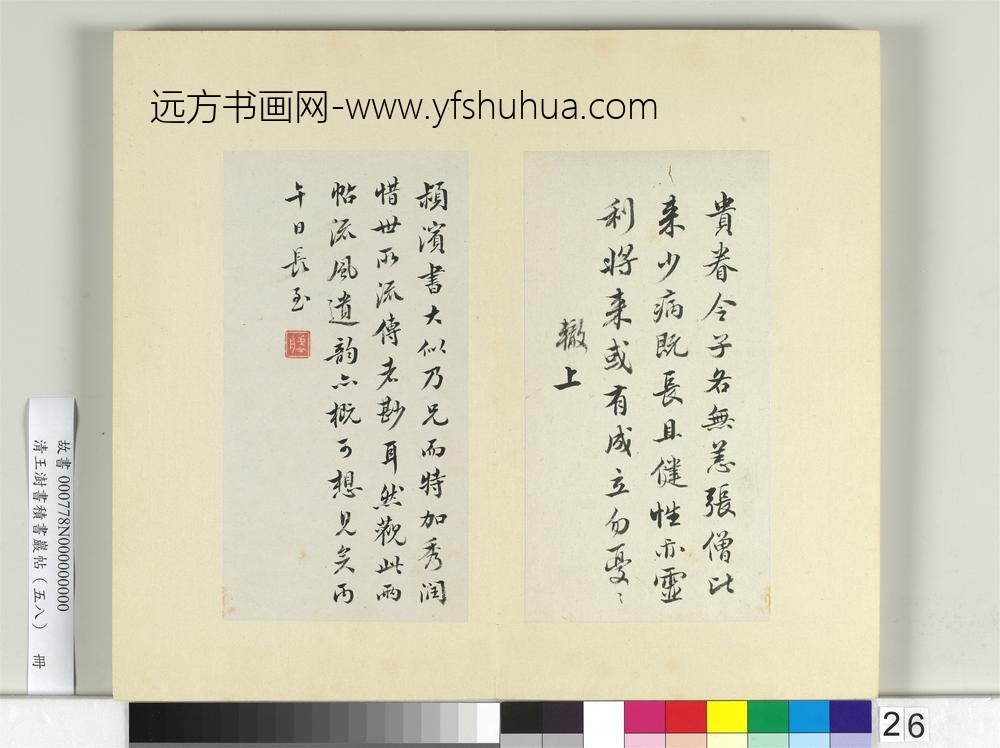 远方书画网-www.yfshuhua.com
貴眷令子各無恙張僧比
來少病既長且健性亦靈
利將來或有成立勿憂〻
轍上
潁濱書大似乃兄而特加秀潤
惜世所流傳者尠耳然觀此兩
帖流風遺韵亦概可想見矣丙
午日長至
故書 000778N000000000
清王澍書積書巖帖（五八） 冊
26